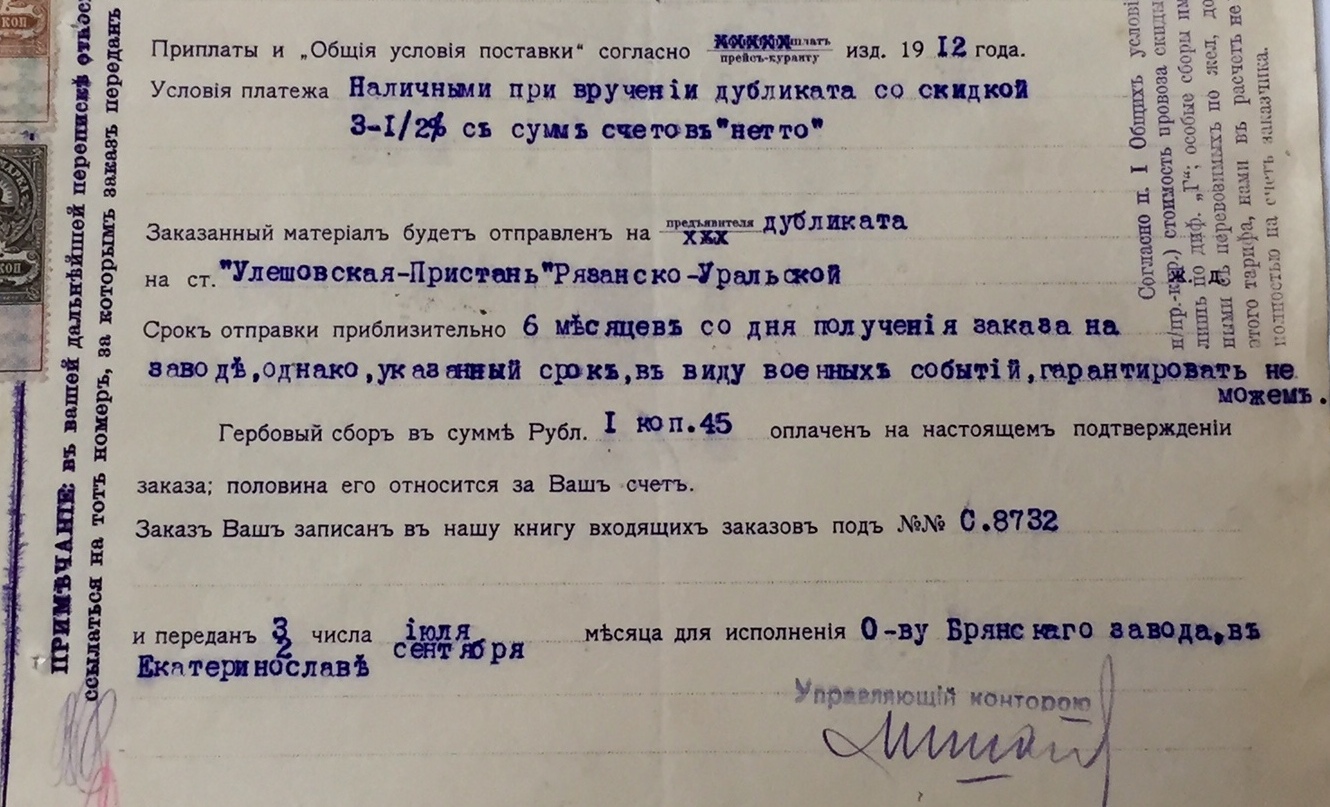 Приплаты и „Общія условія поставки“ согласно прейсъ-куранту изд. 1912 года.
Условія платежа Наличными при врученіи дубликата со скидкой
3-I/2% съ суммъ счетовъ "нетто"
Заказанный матеріалъ будетъ отправленъ на предъявителя дубликата
на ст. "Улешовская-Пристань" Рязанско-Уральской
Срокъ отправки приблизительно 6 мѣсяцевъ со дня полученія заказа на
заводѣ, однако, указанный срокъ, въ виду военныхъ событій, гарантировать не
можемъ.
Гербовый сборъ въ суммѣ Рубл. I коп. 45 оплаченъ на настоящемъ подтвержденіи
заказа; половина его относится за Вашъ счетъ.
Заказъ Вашъ записанъ въ нашу книгу входящихъ заказовъ подъ №№ С.8732
и переданъ 3 числа іюля мѣсяца для исполненія О-ву Брянскаго завода, въ
2 сентября
Екатеринославѣ
Управляющій конторою
ПРИМѢЧАНІЕ: въ вашей дальнѣйшей перепискѣ
ссылаться на тотъ номеръ, за которымъ заказъ переданъ
Согласно п. I Общихъ услові
п/пр.-кур.) стоимость провоза скиды
лишь по диф. „Г“; особые сборы
ными съ перевозимыхъ по жел, до
этого тарифа, нами въ расчетъ не
полностью на счетъ заказчика.
КОП
МАРКА
КОП